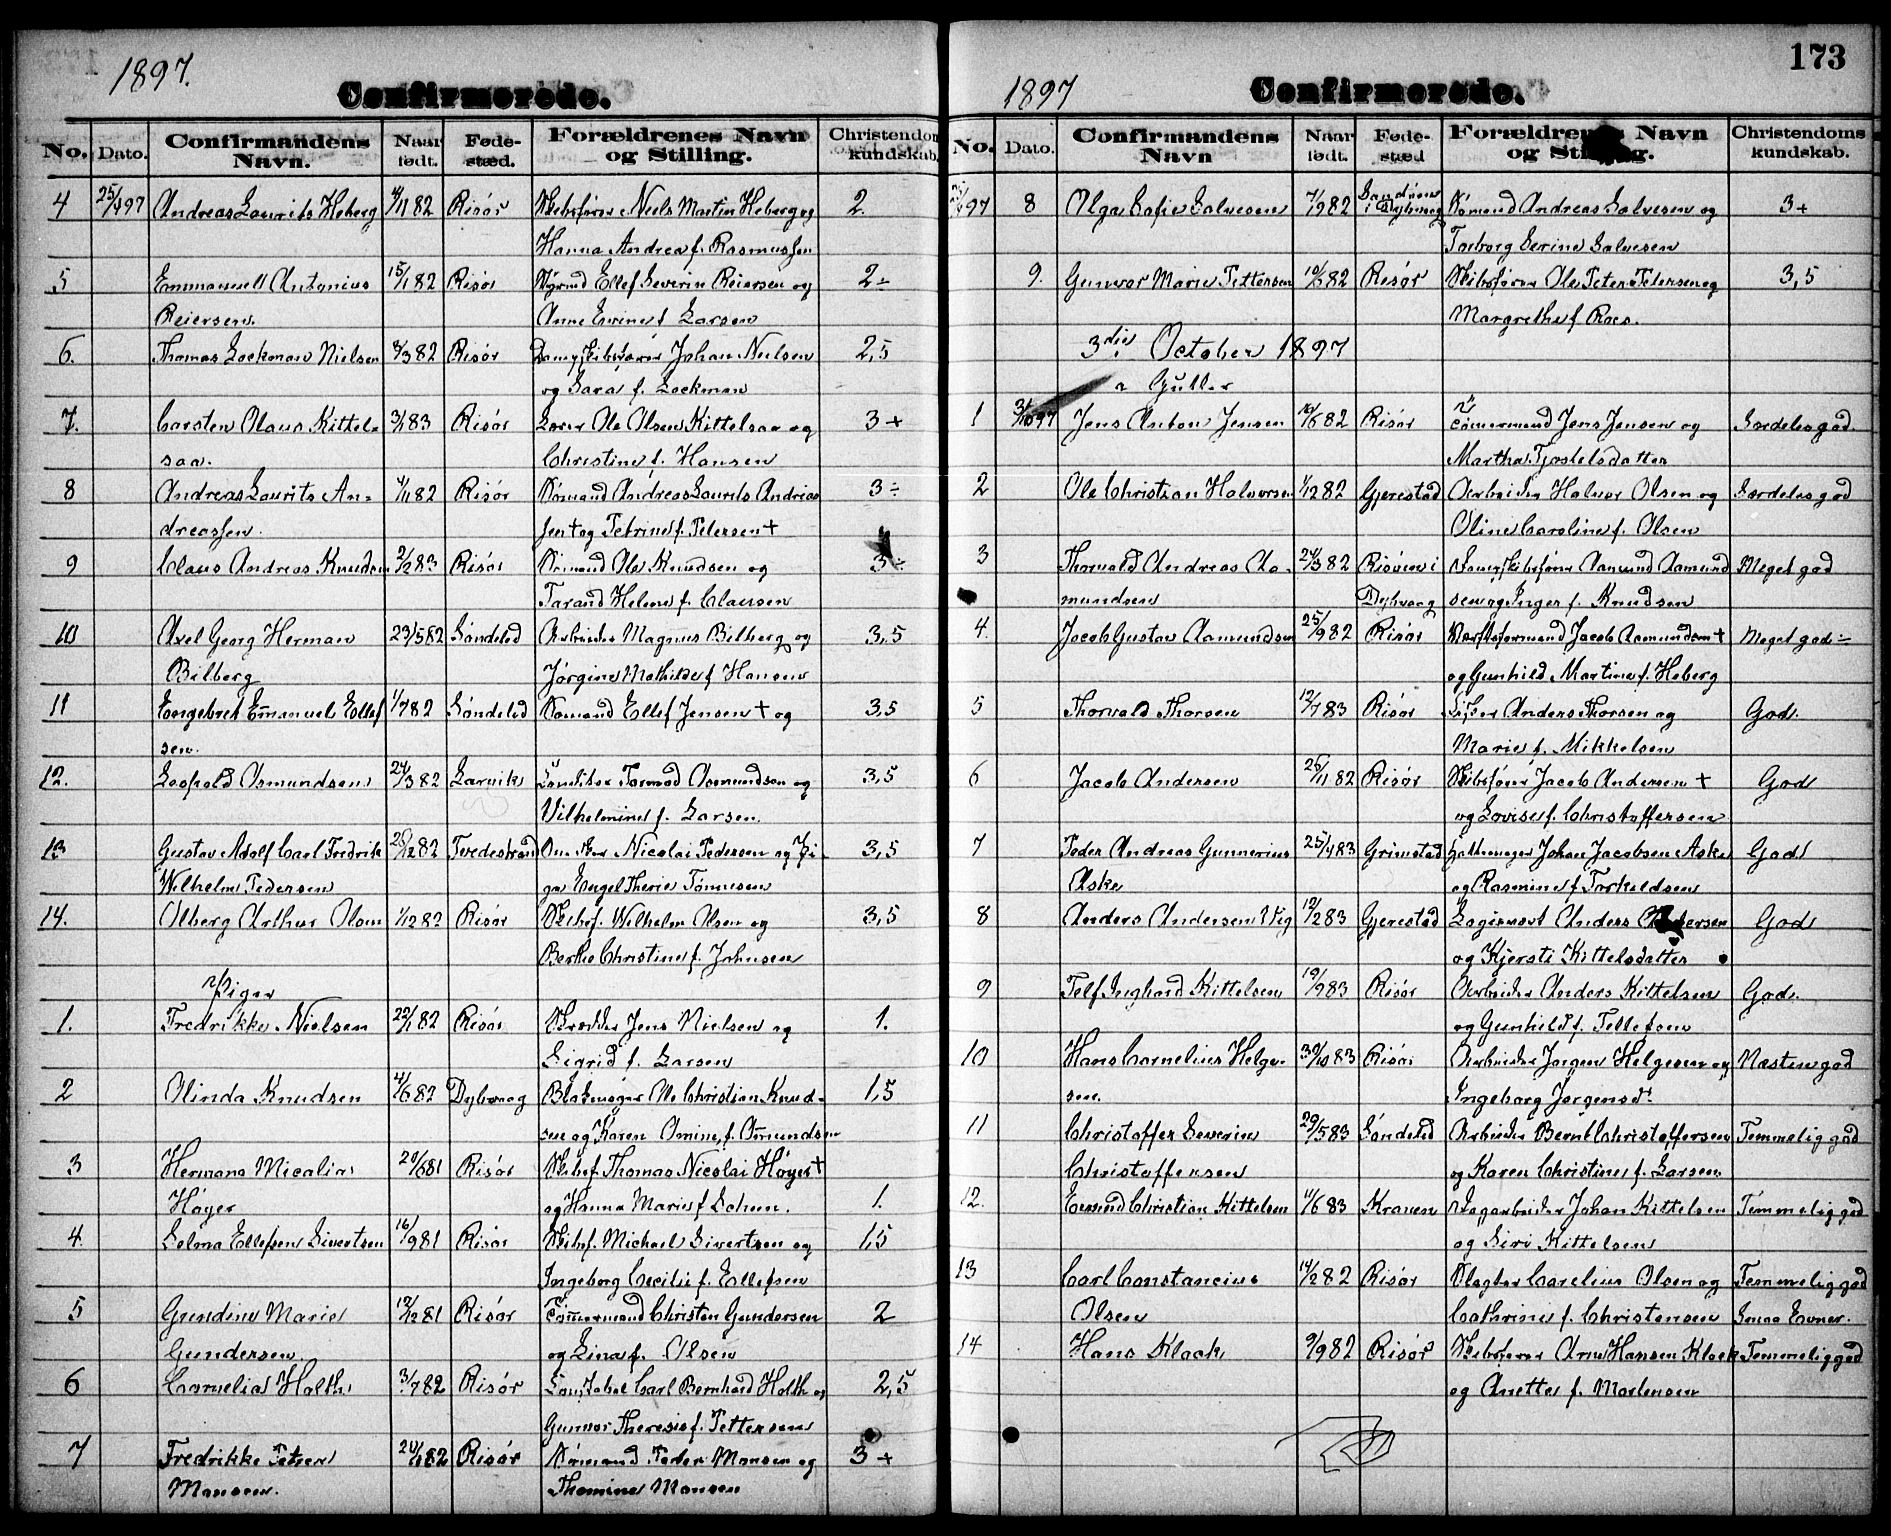 1897.
Confirmerede.
No. Dato. Confirmandens Navn. Naar født. Fødested. Forældrenes Navn og Stilling. Christendomskundskab.
4 25/4 97 Andreas Laurits Heberg 4/11 82 Risør Skibsfører Niels Martin Heberg og 2.
Hanna Andrea f. Rasmussen
5 Emmanuell Antonius 15/1 82 Risør Ellef Severin Reiersen og 2÷
Reiersen. Anne f. Larsen
6. Thomas Lockman Nielsen /3 82 Risør Johan Nielsen 2,5
og Sara f. Lockman
7. Carsten Olaus Kittel= 3/1 83 Risør Ole Olsen Kittelsaa og 3+
saa. Christine f. Hansen
8 Andreas Laurits An= 4/11 82 Risør Sømand Andreas Laurits Andreas 3÷
dreassen. sen + og Petrine f. Petersen +
9 Claus Andreas Knudsen 2/2 83 Risør Sømand Ole Knudsen og 3÷
Tarand Helene f. Clausen
10 Axel Georg Herman 23/5 82 Søndeled Arbeider Magnus Bilberg og 3,5
Bilberg Jørgine Mathilde f Hansen
11 Engebret Emanuel Ellef 1/7 82 Søndeled Sømand Ellef Jensen + og 3,5
sen.
12. Leopold Asmundsen 24/3 82 Larvik Tarmod Aasmundsen og 3,5
Vilhelmine f. Larsen.
13 Gustav Adolf Carl Fredrik 20/12 82 Tvedestrand Nicolai Pedersen og 3,5
Wilhelm Pedersen Tønnesen
14. Alberg Arthur Olsen 1/12 82 Risør Skibsf. Wilhelm Olsen og 3,5
Berthe Christine f. Johnsen
Piger
1. Fredrikke Nielsen 22/1 82 Risør Skrædder Jens Nielsen og 1.
Sigrid f. Larsen
2 Olinda Knudsen 4/6 82 Dybvaag Ole Christian Knud= 1,5
sen og Karen Omine f. Omundsen
3 Hermana Micalia 20/6 81 Risør Skibsf. Thomas Nicolai Høyer +
Høyer og Hanna Marie f 1.
4. Selma Ellefsen Sivertsen 16/9 81 Risør Skibsf. Michael Sivertsen og 1,5
Ingeborg Cecilie f. Ellefsen
5 Gundine Marie 12/12 81 Risør Tømmermand Christen Gundersen 2
Gundersen og Lina f. Olsen
6 Cornelia Holth 3/7 82 Risør Carl Bernhard Holth og 2,5
Gunvor Theresie f. Pettersen
7 Fredrikke Petrea 20/1 82 Risør Sømand Peder Monsen og 3+
Monsen. Thomine Monsen
1897
Confirmerede.
173
No. Dato. Confirmandens Navn Naar født. Fødested Forældrenes Navn og Stilling. Christendomskundskab.
97 8 Olga Sofie Salvesen 7/9 82 i Dybvaag Sømand Andreas Salvesen og 3+
Torborg Serine Salvesen
9. Gunvor Marie Pettersen 10/ 82 Risør Skibsfører Ole Peter Petersen og 3,5
Margrethe f Roes.
3die October 1897
a Gutter
1 3/10 97 Jens Anton Jensen 16/6 82 Risør Tømermand Jens Jensen og Særdeles god.
Martha Tjostelsdatter
2 Ole Christian Halvorsen 1/12 82 Gjerestad Arbeider Halvor Olsen og Særdeles god
Oline Caroline f. Olsen
3 Thorvald Andreas Aa- 24/3 82 Risøen i Aamund Aamund Meget god
mundsen Dybvaag sen og Inger f. Knudsen
4. Jacob Gustav Aamundsen 25/9 82 Risør Jacob Aamundsen + Meget god÷
og Gunhild Martine f. Heberg
5 Thorvald Thorsen 12/7 83 Risør Anders Thorsen og God.
Marie f. Mikkelsen
6 Jacob Andersen 26/11 82 Risør Skibsfører Jacob Andersen + God
og Lovise f. Christoffersen
7 Peder Andreas Gunnerius 25/4 83 Grimstad Johan Jacobsen Aske God
Aske og Rasmine f Torkeldsen
8 Anders Andersen Vig 12/2 83 Gjerestad Anders Andersen God
og Kjersti Kittelsdatter
9 Telf Inghard Kittelsen 19/9 83 Risør Arbeider Anders Kittelsen God.
og Gunhild f. Tellefsen
10 Hans Cornelius Helge- 30/10 83 Risør Arbeider Jørgen Helgesen og Næsten god
sen. Ingeborg Jørgensd.
11 Christoffer Severin 29/5 83 Søndeled Arbeider Bernt Christoffersen Temmelig god
Christoffersen og Karen Christine f. Larsen
12. Christian Kittelsen 11/6 83 Kranen Johan Kittelsen Temmelig god
og Siri Kittelsen
13 Carl Constancius 14/2 82 Risør Slagter Carelius Olsen og Temmelig god
Olsen Cathrine f. Christensen Smaa Evner.
14 Hans Klock 9/9 82 Risør Skibsfører Arne Hansen Klock Temmelig god
og Anette f. Mortensen